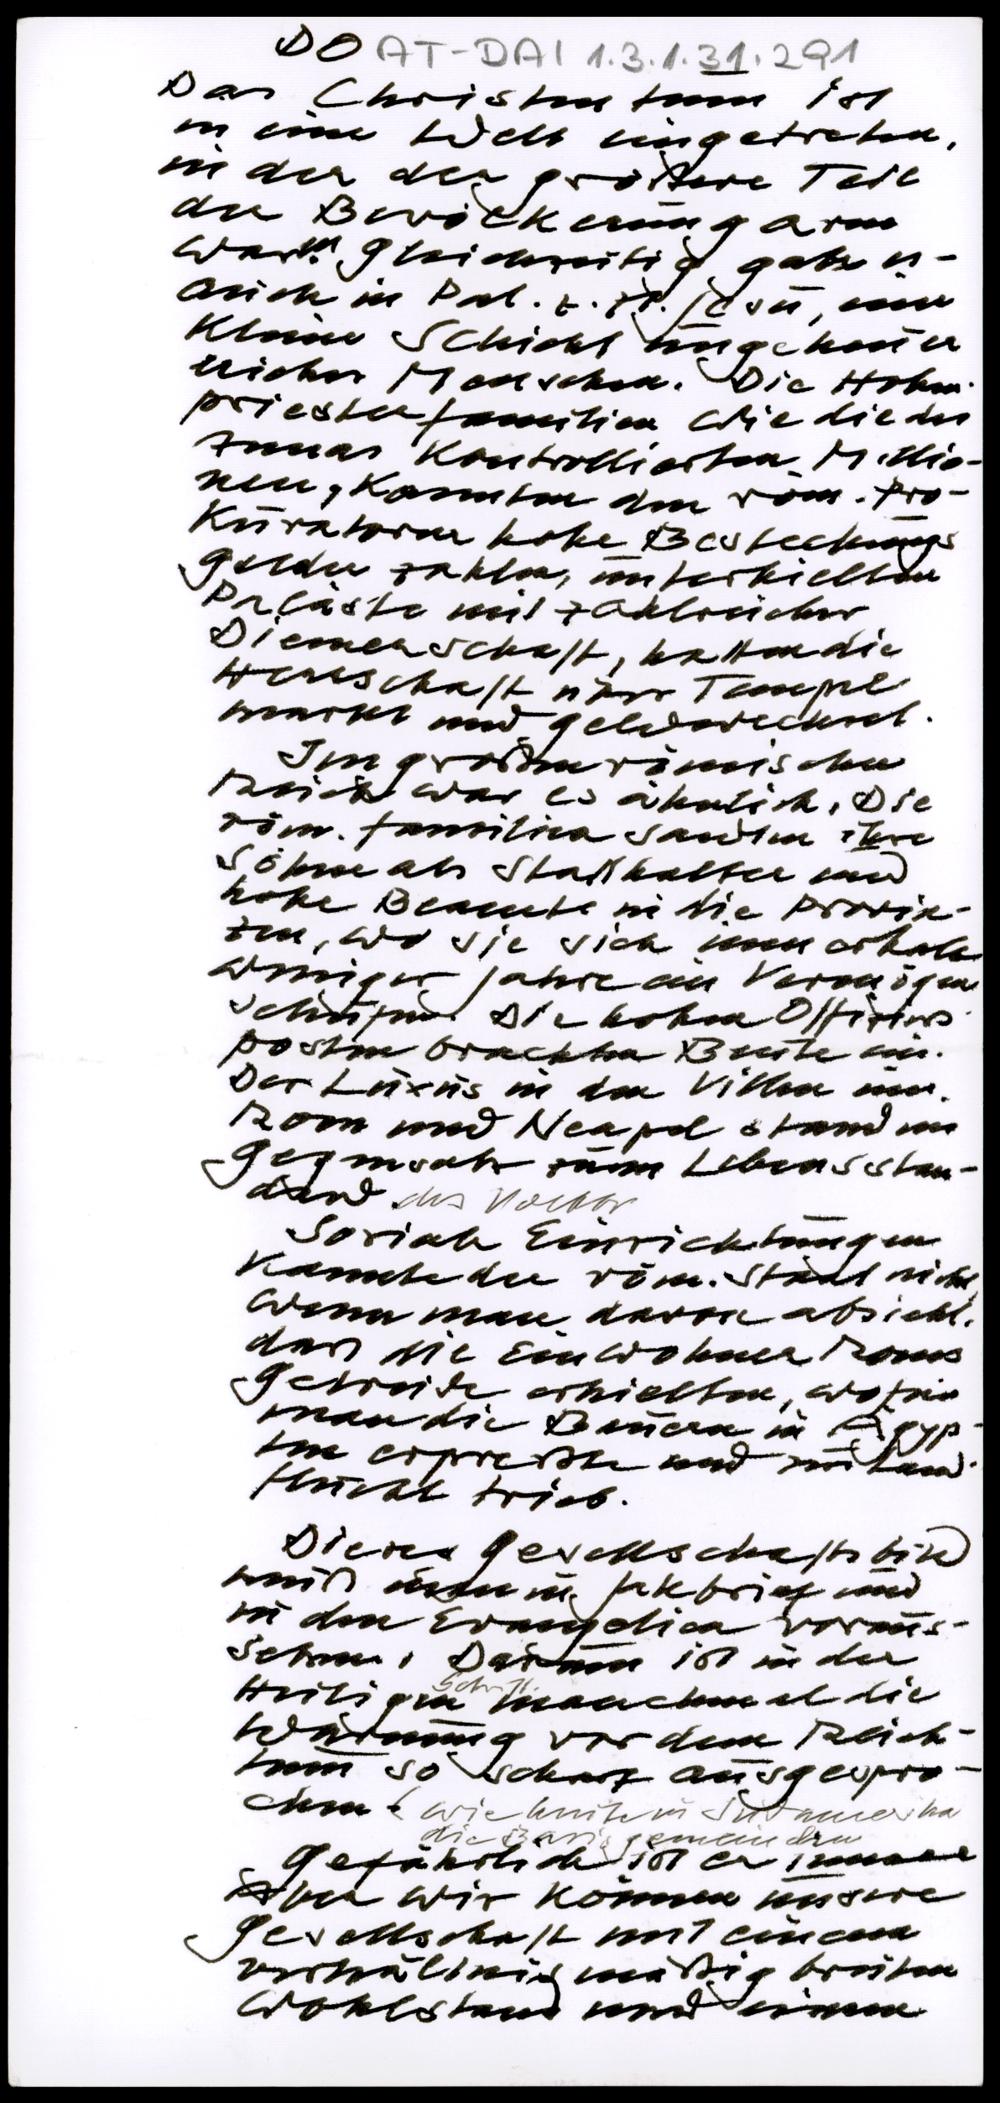 DO AT-DAI 1.3.1.31.291
Das Christentum ist
in eine Welt eingetreten,
in der der größere Teil
der Bevölkerung arm
war. Gleichzeitig gab es -
auch in Pal. z. Zt. Jesu, eine
kleine Schicht ungeheuer
reicher Menschen. Die Hohe-
priesterfamilien wie die des
Annas kontrollierten Millio-
nen, konnten den röm. Pro-
kuratoren hohe Bestechungs
gelder zahlen, unterhielten
Paläste mit zahlreicher
Dienerschaft, hatten die
Herrschaft über Tempel
markt und Geldwechsel.
Im großen römischen
Reich war es ähnlich. Die
röm. Familien sandten ihre
Söhne als Statthalter und
hohe Beamte in die Provin-
zen, wo sie sich innerhalb
weniger Jahre ein Vermögen
schufen. Die hohen Offiziers-
posten brachten Beute ein.
Der Luxus in den Villen um
Rom und Neapel stand im
Gegensatz zum Lebensstan-
dard des Volkes
Soziale Einrichtungen
kannte der röm. Staat nicht,
wenn man davon absieht,
dass die Einwohner Roms
Getreide erhielten, wofür
man die Bauern in Ägyp-
ten erpreßte und zur Land-
flucht trieb.
Dieses Gesellschaftsbild
muß man im Jakbrief und
in den Evangelien voraus-
setzen. Darum ist in der
Heiligen Schrift manchmal die
Warnung vor dem Reich-
tum so scharf ausgespro-
chen (wie heute in Südamerika
die Basisgemeinden
Gefährlich ist er immer
Aber wir können unsere
Gesellschaft mit einem
verhältnismäßig breiten
Wohlstand und einem